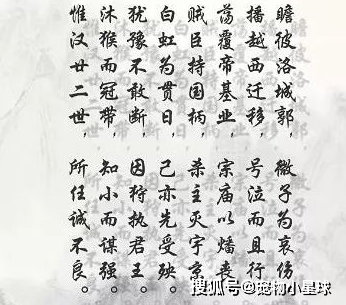 惟汉廿二世，所任诚不良。
沐猴而冠带，知小而谋强。
犹豫不敢断，因狩执君王。
白虹为贯日，己亦先受殃。
贼臣持国柄，杀主灭宇京。
荡覆帝基业，宗庙以燔丧。
播越西迁移，号泣而且行。
瞻彼洛城郭，微子为哀伤。
搜狐号@小星球